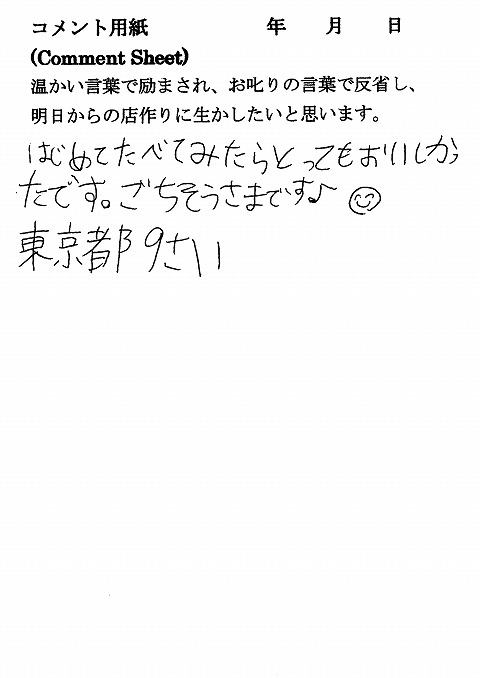 コメント用紙 年 月 日
(Comment Sheet)
温かい言葉で励まされ、お叱りの言葉で反省し、
明日からの店作りに生かしたいと思います。
はじめてたべてみたらとってもおいしかっ
たです。ごちそうさまです♪
東京都 9さい